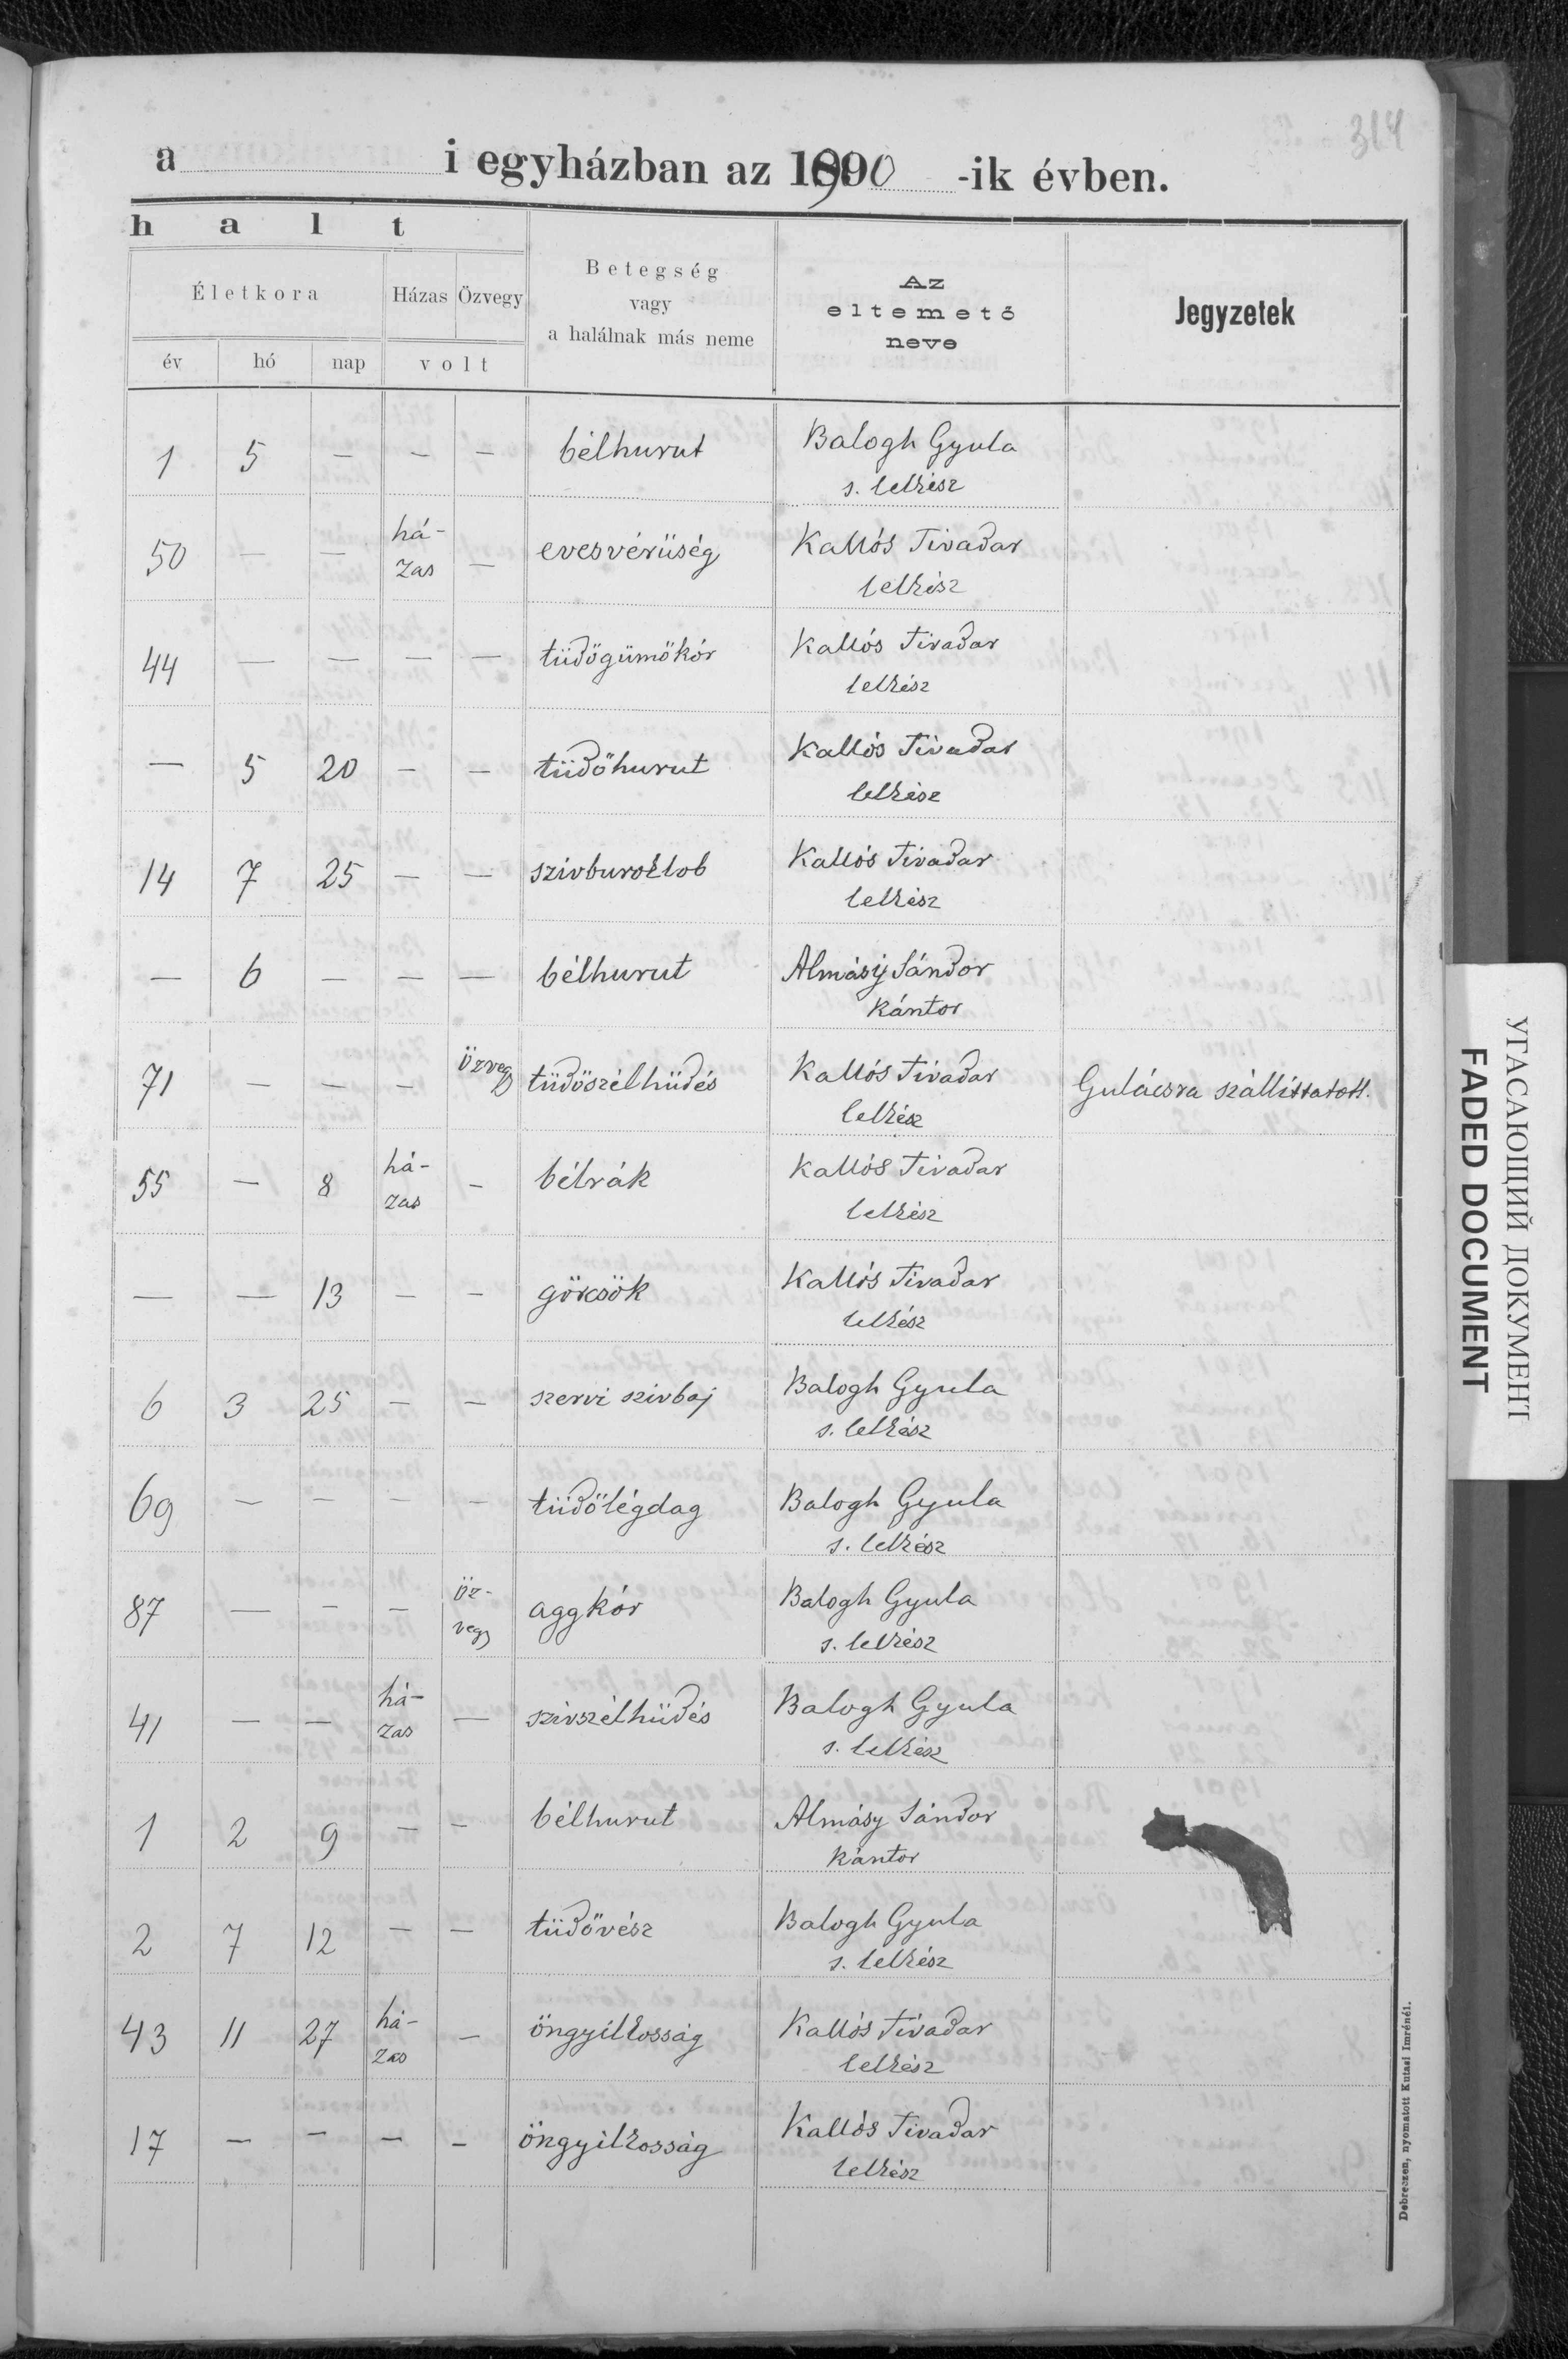 314
a i egyházban az 1900 -ik évben.
h a l t
Életkora Házas Özvegy Betegség vagy a halálnak más neme Az eltemető neve Jegyzetek
év hó nap volt
1 5 — — — bélhurut Balogh Gyula
s. lelkész
50 — — há- — evesvérüség Kallós Tivadar
zas lelkész
44 — — — — tüdőgümőkór Kallós Tivadar
lelkész
— 5 20 — — tüdőhurut Kallós Tivadar
lelkész
14 7 25 — — szivburoklob Kallós Tivadar
lelkész
— 6 — — — bélhurut Almásy Sándor
kántor
71 — — — özvegy tüdőszélhüdés Kallós Tivadar Gulácsra szállittatott.
lelkész
55 — 8 há- — bélrák Kallós Tivadar
zas lelkész
— — 13 — — görcsök Kallós Tivadar
lelkész
6 3 25 — — szervi szivbaj Balogh Gyula
s. lelkész
69 — — — — tüdőlégdag Balogh Gyula
s. lelkész
87 — — — öz- aggkór Balogh Gyula
vegy s. lelkész
41 — — há- — szivszélhüdés Balogh Gyula
zas s. lelkész
1 2 9 — — bélhurut Almásy Sándor
kántor
2 7 12 — — tüdővész Balogh Gyula
s. lelkész
43 11 27 há- — öngyilkosság Kallós Tivadar
zas lelkész
17 — — — — öngyilkosság Kallós Tivadar
lelkész
Debreczen, nyomatott Kutasi Imrénél.
УГАСАЮЩИЙ ДОКУМЕНТ
FADED DOCUMENT